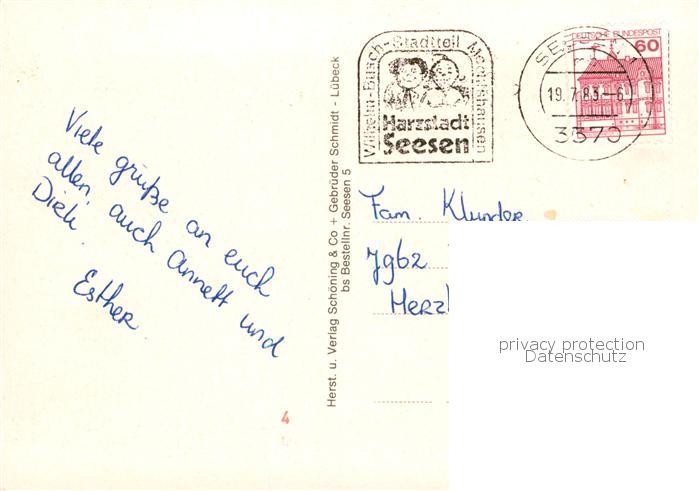 Viele grüße an euch
allen, auch Annett und
Dirk.
Esther
4
Herst. u. Verlag Schöning & Co + Gebrüder Schmidt - Lübeck
bs Bestellnr. Seesen 5
Wilhelm-Busch-Stadtteil Mechtshausen
Harzstadt
Seesen
19.7.83.-6
3370
DEUTSCHE BUNDESPOST
60
Fam. Klunder
7962
privacy protection
Datenschutz